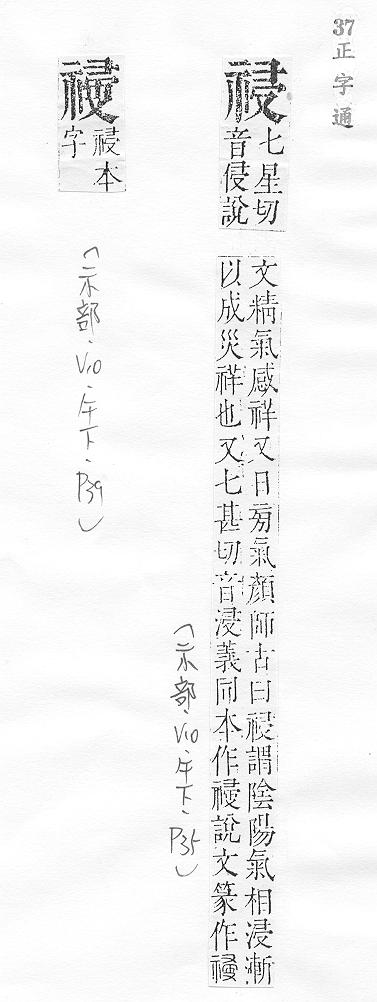 37正字通
祲
七星切
音侵說
文精氣感祥又日旁氣顏師古曰祲謂陰陽氣相浸漸
以成災祥也又七甚切音浸義同本作說文篆作
（示部、V10、午下、P35）
祲本
字
（示部、V10、午下、P39）